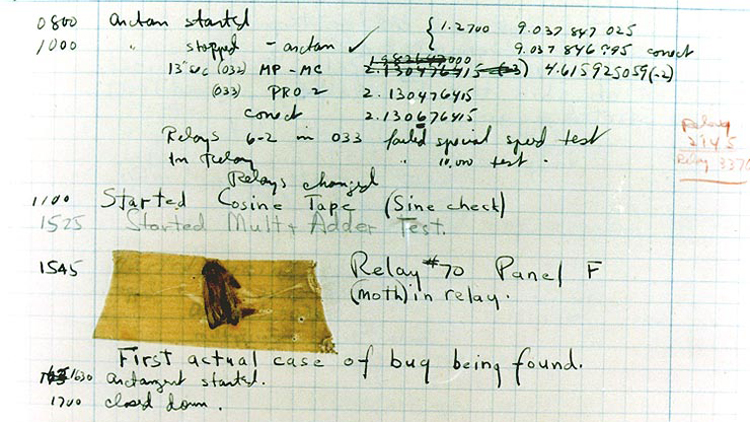 0800 arctan started { 1.2700 9.037 847 025
1000 " stopped - arctan ✓ 9.037 846 995 conect
13" uc (032) MP - MC 2.130476415 4.615925059(-2)
(033) PRO 2 2.130476415
conect 2.130676415
Relays 6-2 in 033 failed special speed test
In Relay " 10,000 test .
Relays changed
Relay
2145
Relay 3370
1100 Started Cosine Tape (Sine check)
1525 Started Mult+ Adder Test.
1545 Relay #70 Panel F
(moth) in relay.
First actual case of bug being found.
1630 arctangent started.
1700 closed down.